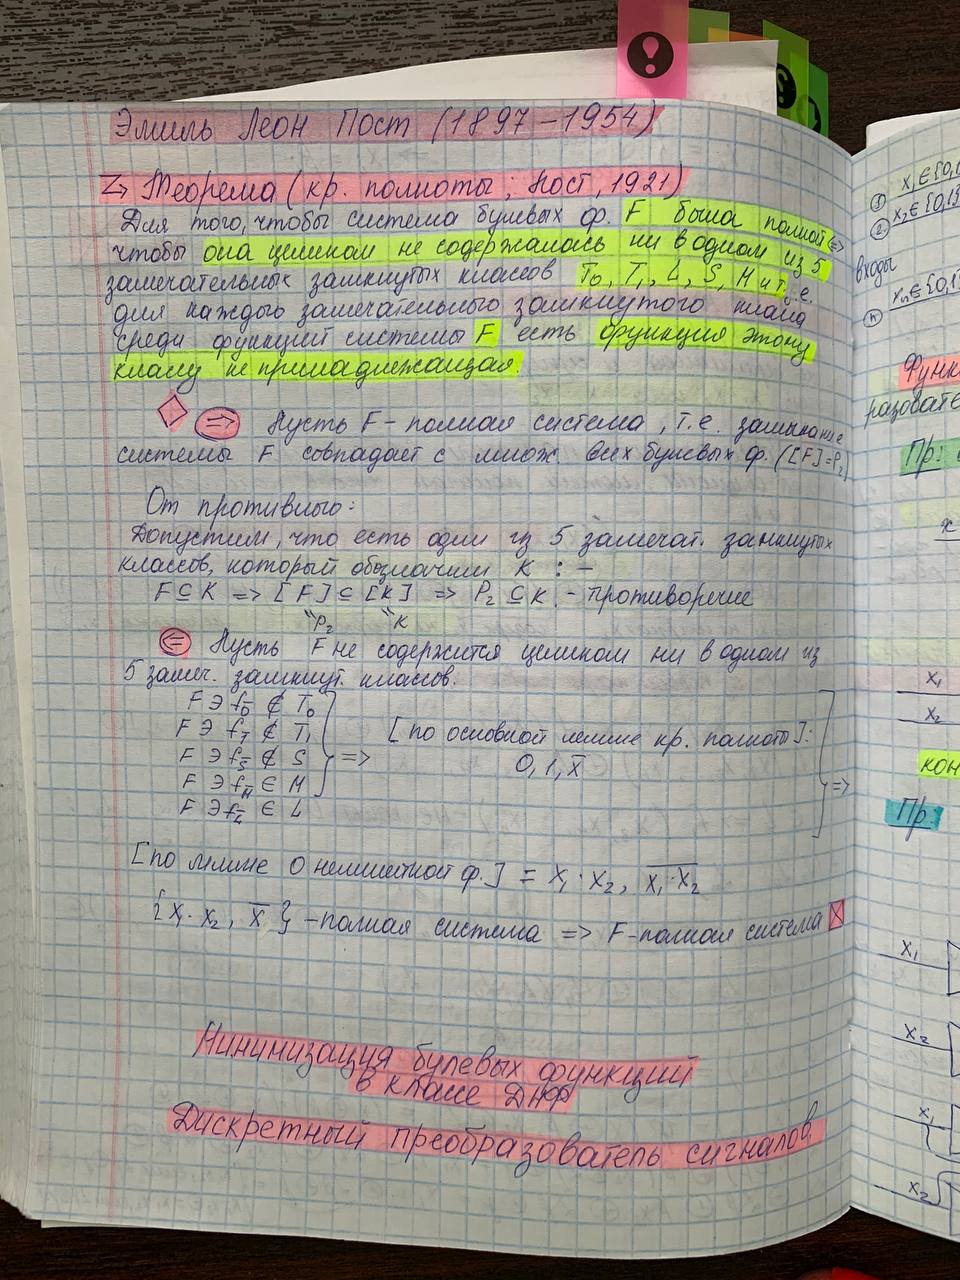 Эмиль Леон Пост (1897–1954)
Теорема (кр. полноты; Пост, 1921)
Для того, чтобы система булевых ф. F была полной <=>
чтобы она целиком не содержалась ни в одном из 5
замечательных замкнутых классов T₀, T₁, L, S, M и т.е.
для каждого замечательного замкнутого класса
среди функций системы F есть функция этому
классу не принадлежащая.
=> Пусть F – полная система, т.е. замыкание
системы F совпадает с множ. всех булевых ф. ([F]=P₂)
От противного:
Допустим, что есть один из 5 замечат. замкнутых
классов, который обозначим K : –
F ⊆ K => [F] ⊆ [K] => P₂ ⊆ K – противоречие
"P₂ "K
<= Пусть F не содержится целиком ни в одном из
5 замеч. замкнут. классов.
F ∋ f₀̄ ∉ T₀
F ∋ f₁̄ ∉ T₁
F ∋ f_S̄ ∉ S => [по основной лемме кр. полноты]:
0, 1, x̄
F ∋ f_M̄ ∈ M =>
F ∋ f_L̄ ∈ L
[по лемме о нелинейной ф.] = x₁·x₂, \overline{x₁·x₂}
{x₁·x₂, x̄} – полная система => F – полная система
Минимизация булевых функций
в классе ДНФ
Дискретный преобразователь сигналов
① x₁ ∈ {0,1
② x₂ ∈ {0,1}
входы
ⓝ xₙ ∈ {0,1}
Функ
разовате
Пр:
x
x₁
x₂
кон
Пр:
x₁
x₂
x₁
x₂